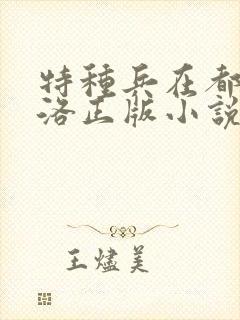 特種兵在都
洛正版小説
王燼美